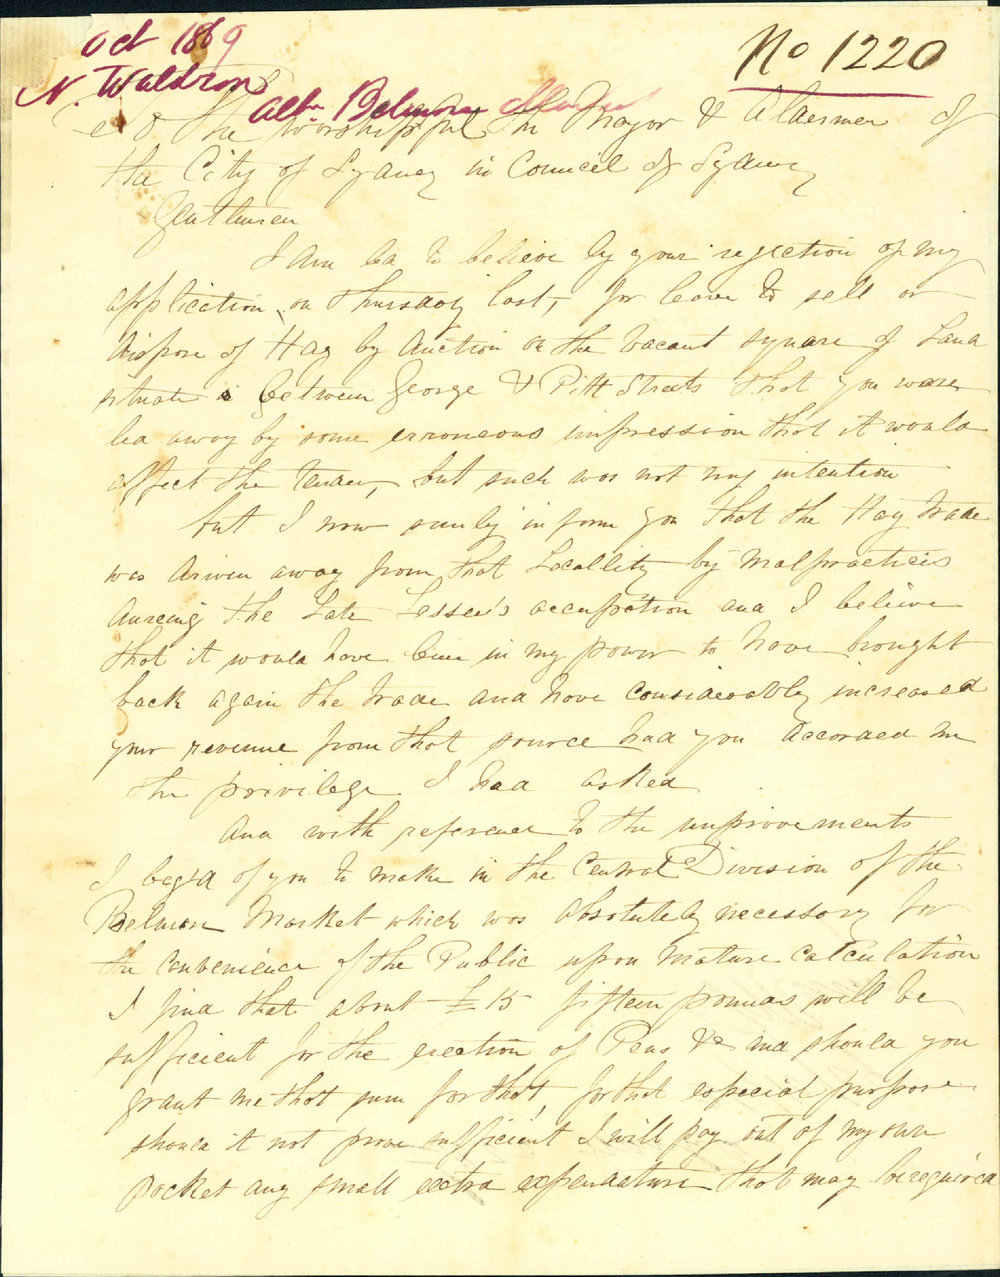 Oct 1869
No 1220
N. Waldron
Altn Belmore Market
To The Worshipful The Mayor & Aldermen of
the City of Sydney in Council of Sydney
Gentlemen
I Am led to believe by your rejection of my
application, on Thursday last, for leave to sell or
dispose of Hay by Auction on the vacant square of Land
situate between George & Pitt Streets that you were
led away by some erroneous impression that it would
affect the Tender, but such was not my intention
but I now surely inform you that the Hay Trade
was driven away from that Locallity by Malpractices
during the Late Lessee's occupation and I believe
that it would have been in my power to have brought
back again the trade and have considerably increased
your revenue from that source had you accorded me
the privilege I had asked
And with reference to the improvements
I begd of you to make in the Central Division of the
Belmore Market which was absolutely necessary for
the convenience of the Public upon mature calculation
I find that about £15 fifteen pounds will be
sufficient for the erection of Pens &c and should you
grant me that sum for that, for that especial purpose
should it not prove sufficient I will pay out of my own
pocket any small extra expenditure that may be required